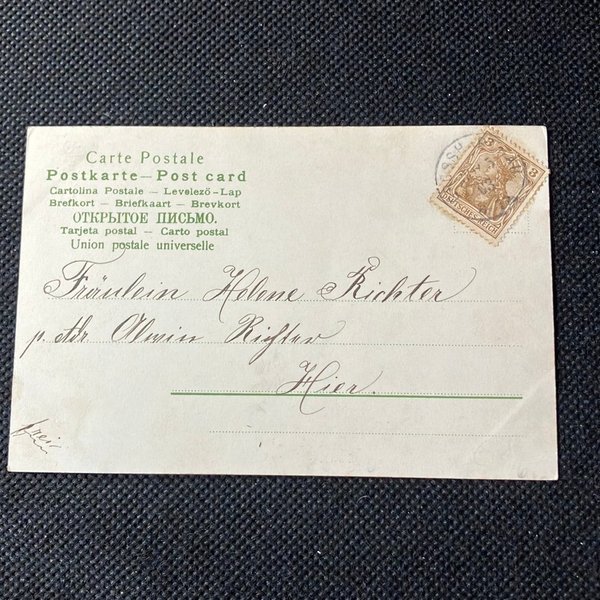 Carte Postale
Postkarte — Post card
Cartolina Postale — Levelező-Lap
Brefkort — Briefkaart — Brevkort
ОТКРЫТОЕ ПИСЬМО.
Tarjeta postal — Carto postal
Union postale universelle
3 3
DEUTSCHES REICH
Fräulein Helene Richter
p. Adr. Alwin Richter
Hier.
frei